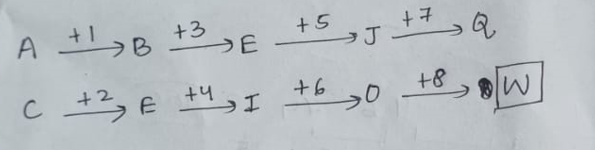 A +1→ B +3→ E +5→ J +7→ Q
C +2→ E +4→ I +6→ O +8→ W